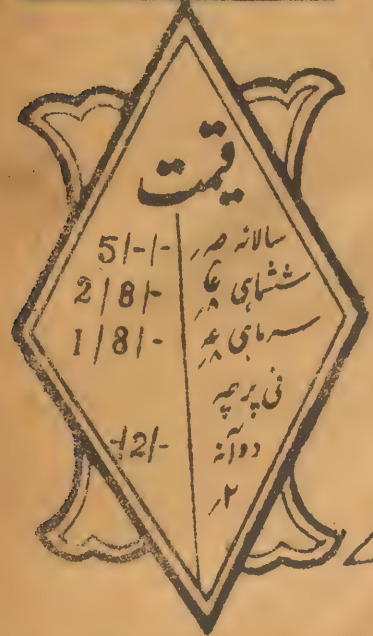 قیمت
سالانہ صہ ر 5/-/-
ششماہی 2/8/-
سہ ماہی 1/8/-
فی پرچہ
دوآنہ -/2/-
۲ر